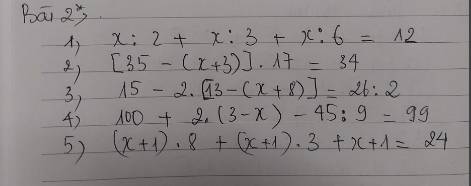 Bài 2*,
1) x : 2 + x : 3 + x : 6 = 12
2) [35 - (x+3)] . 17 = 34
3) 15 - 2. [13 - (x + 8)] = 26 : 2
4) 100 + 2. (3 - x) - 45 : 9 = 99
5) (x+1) . 8 + (x+1) . 3 + x + 1 = 24